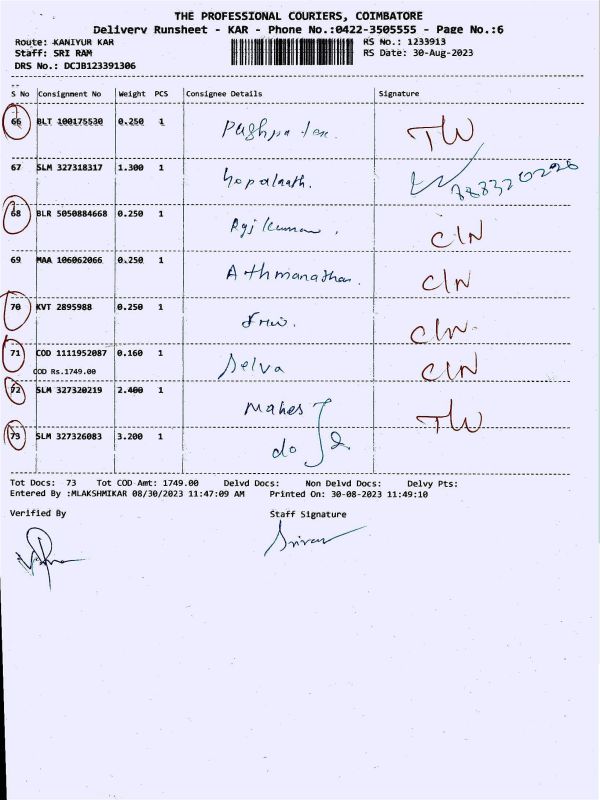 THE PROFESSIONAL COURIERS, COIMBATORE
Delivery Runsheet - KAR - Phone No.:0422-3505555 - Page No.:6
Route: KANIYUR KAR RS No.: 1233913
Staff: SRI RAM RS Date: 30-Aug-2023
DRS No.: DCJB123391306
S No Consignment No Weight PCS Consignee Details Signature
66 BLT 100175530 0.250 1 TW
67 SLM 327318317 1.300 1
68 BLR 5050884668 0.250 1 Rajkumar. CIN
69 MAA 106062066 0.250 1 Athmanathan. CIN
70 KVT 2895988 0.250 1 CIN.
71 COD 1111952087 0.160 1 Selva CIN
COD Rs.1749.00
72 SLM 327320219 2.400 1 Mahes TW
73 SLM 327326083 3.200 1 do
Tot Docs: 73 Tot COD Amt: 1749.00 Delvd Docs: Non Delvd Docs: Delvy Pts:
Entered By :MLAKSHMIKAR 08/30/2023 11:47:09 AM Printed On: 30-08-2023 11:49:10
Verified By Staff Signature